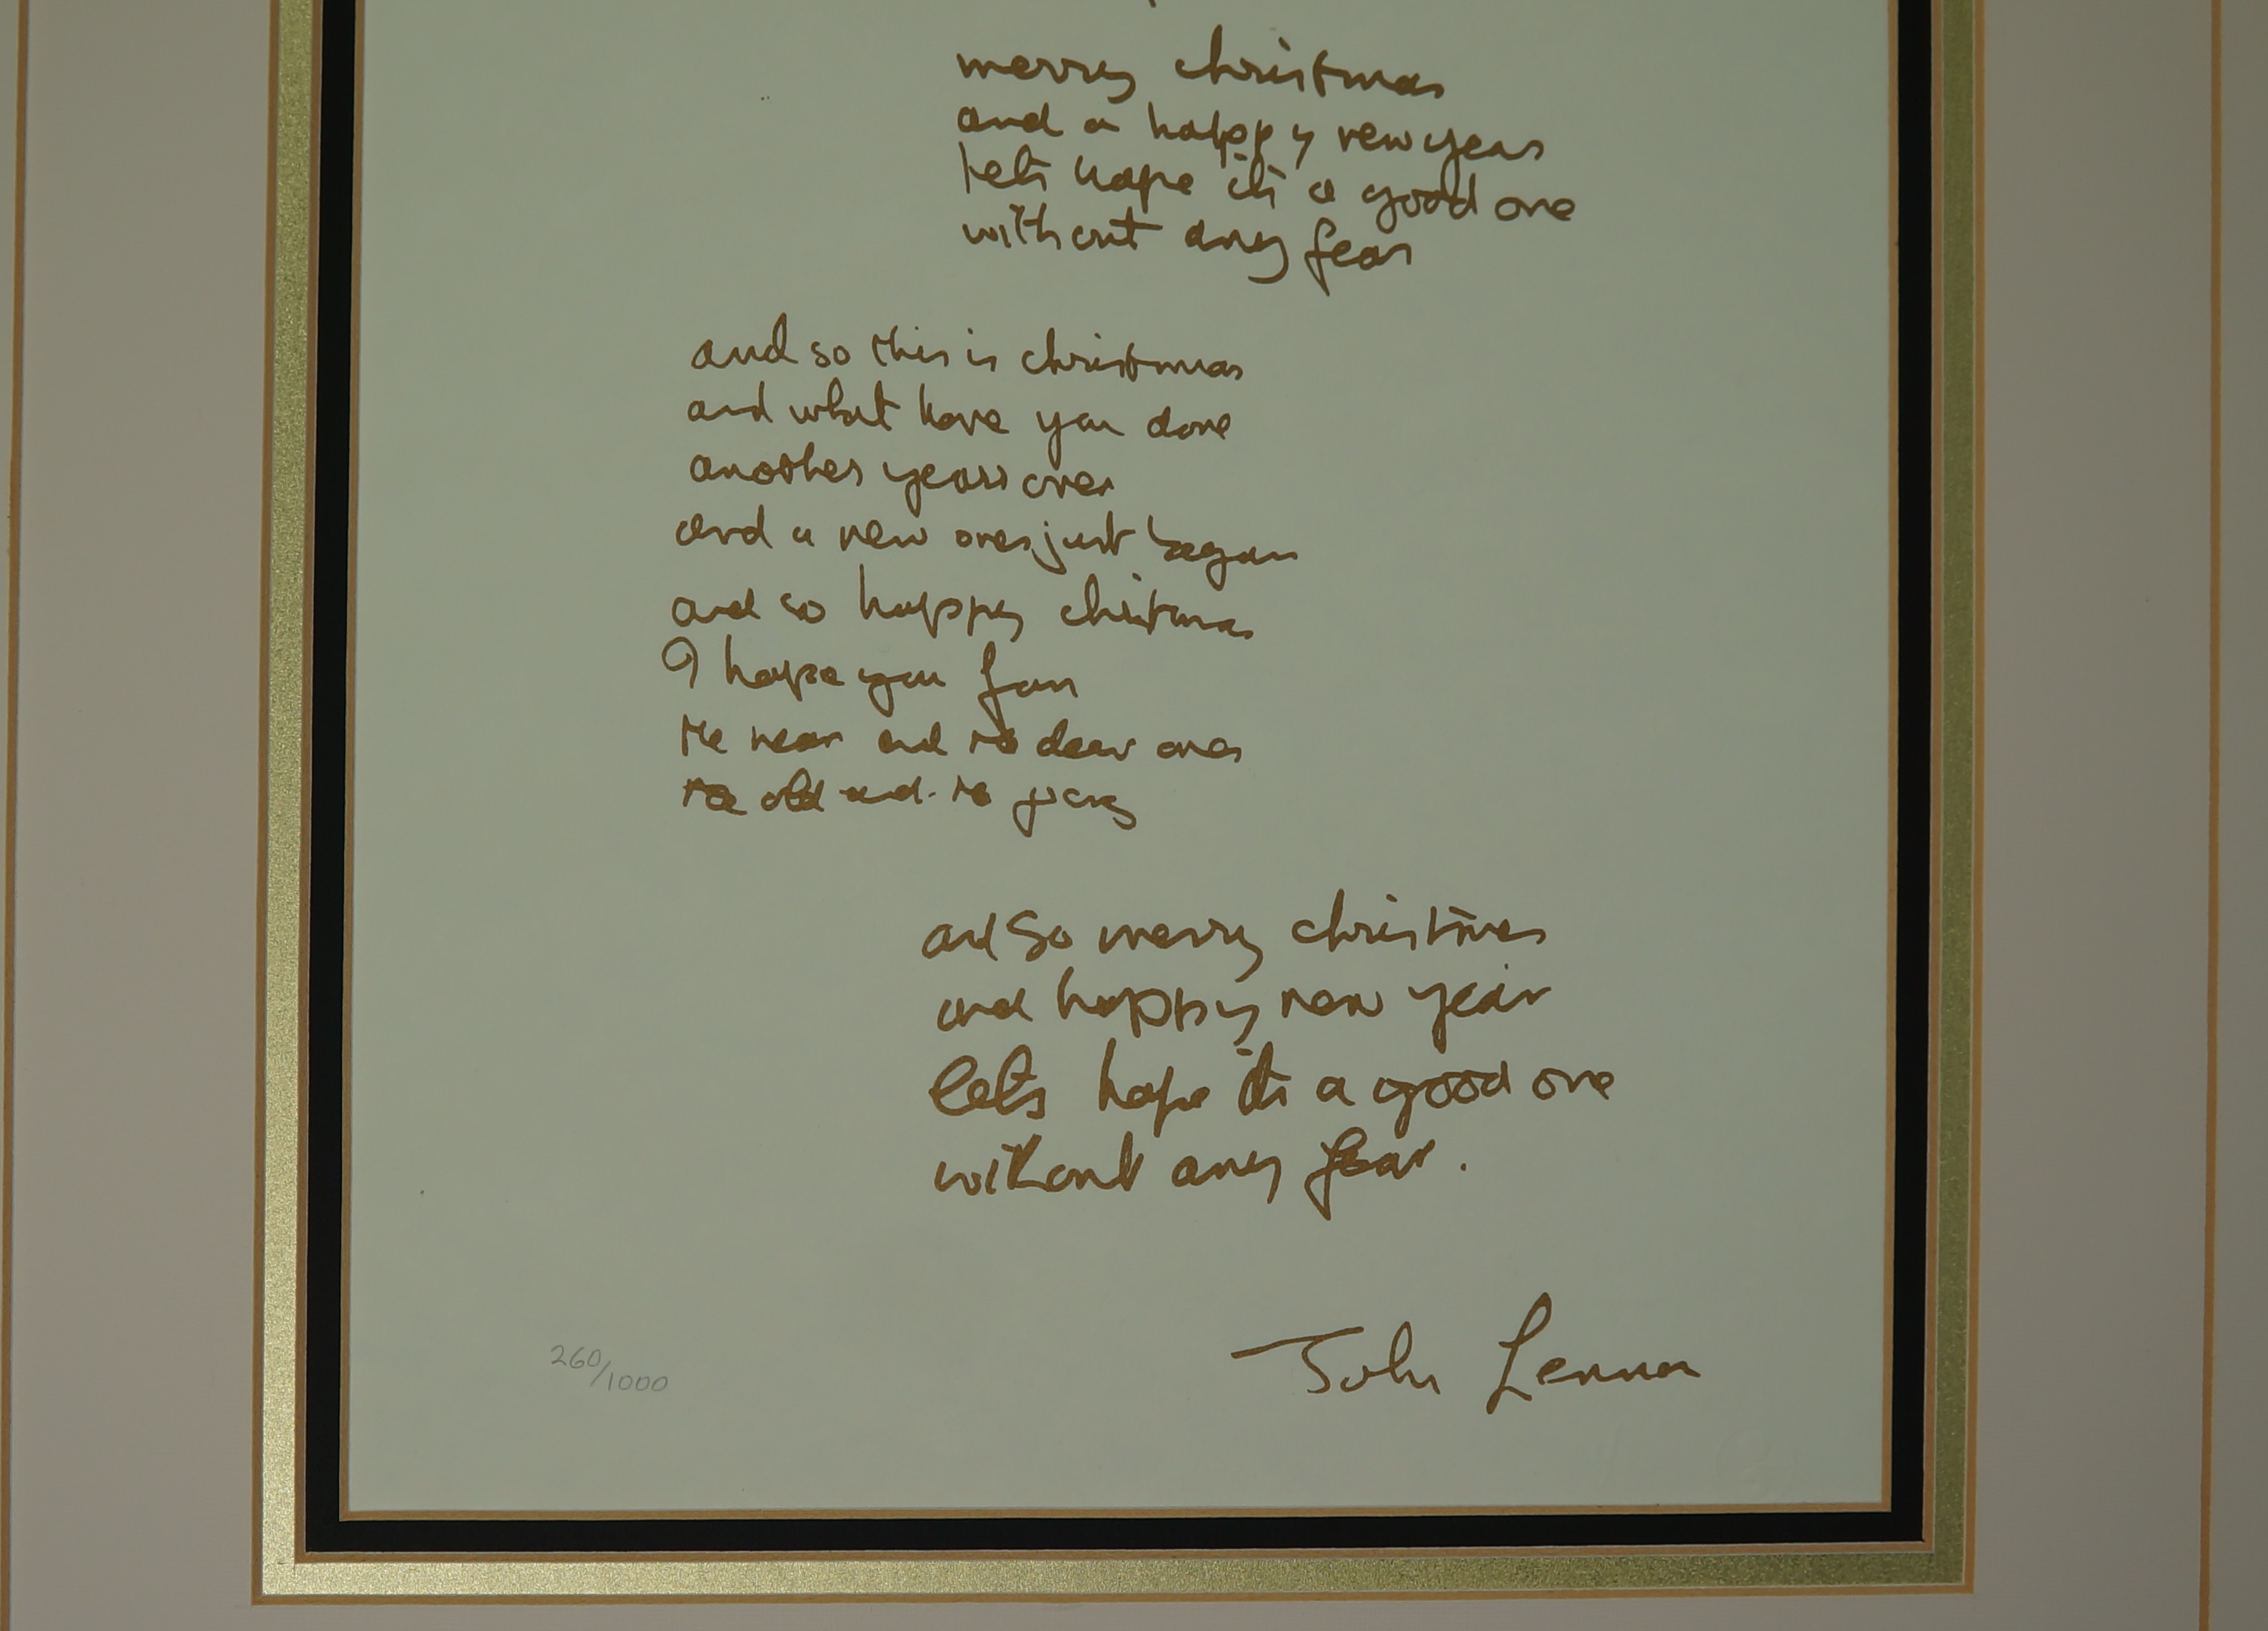 merry christmas
and a happy new year
lets hope its a good one
without any fear
and so this is christmas
and what have you done
another years over
and a new ones just began
and so happy chistmas
I hope you fun
the near and the dear ones
the old and the young
and so merry christmas
and happy new year
lets hope its a good one
without any fear.
John Lennon
260/1000